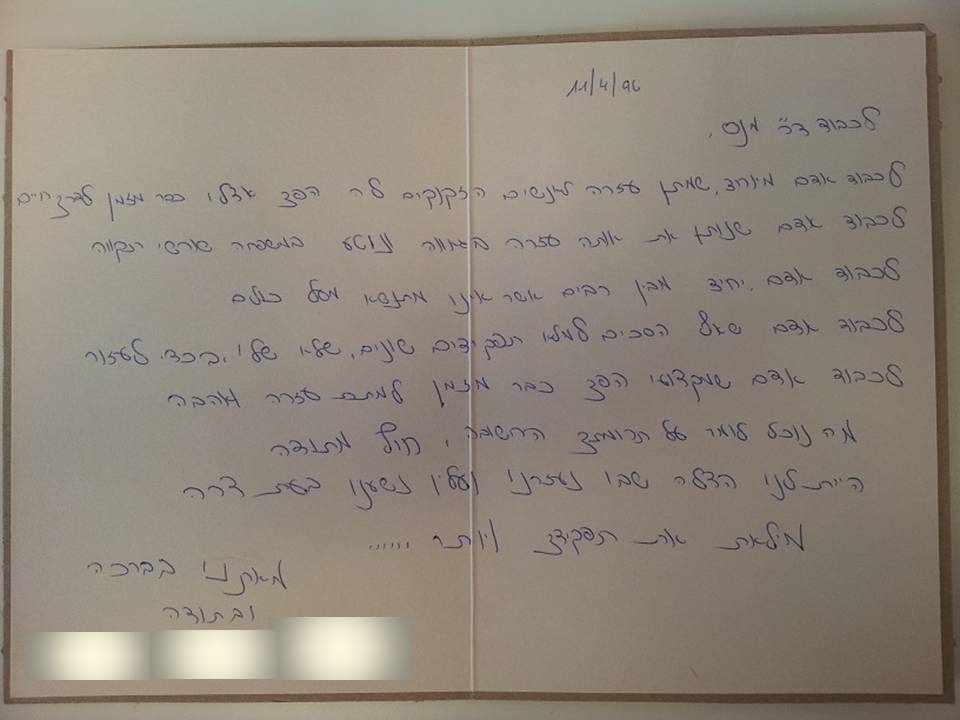 11/4/96
לכבוד ד"ר מנס,
לכבוד אדם מיוחד, שמתן עזרה לאנשים הזקוקים לה הפך אצלו כבר מזמן לדרך חיים
לכבוד אדם שנותן את אותה עזרה בגאווה ונוטע במשפחה שורשי תקווה
לכבוד אדם, יחיד מבין רבים אשר אינו מתנשא מעל כולם
לכבוד אדם שאף הסכים למלא תפקידים שונים, שלא שלו, בכדי לעזור
לכבוד אדם שמקצועו הפך כבר מזמן למתת עזרה ואהבה
מה נוכל לומר על תרומתך החשובה, חוץ מתודה
היית לנו הדלת שבו נעזרנו ועליו נשענו בעת צרה
מילאת את תפקידך ויותר ......
מאתנו בברכה
ובתודה